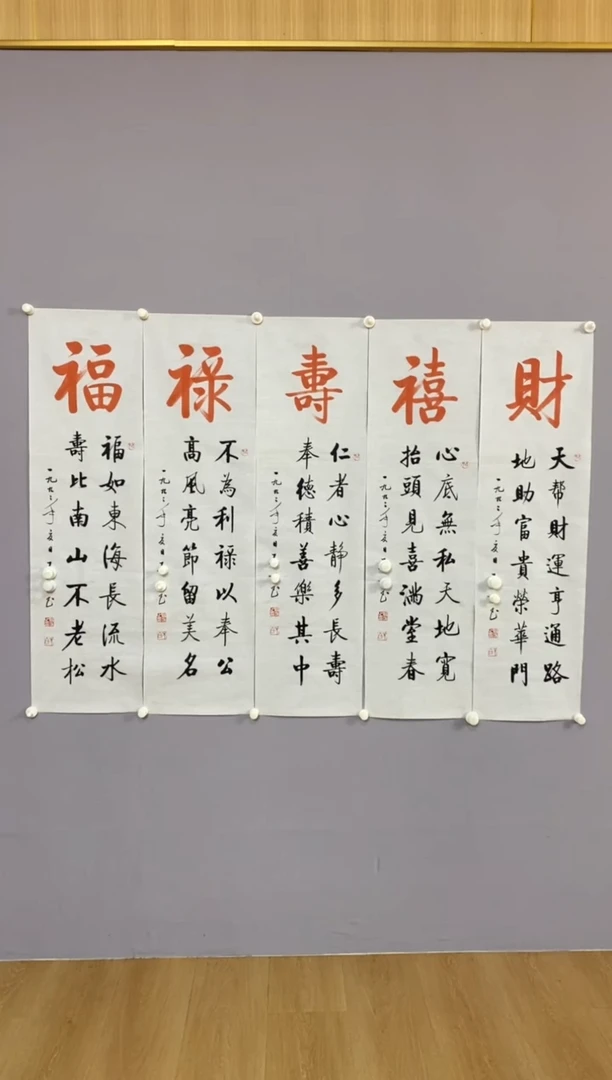 福
福如東海長流水
壽比南山不老松
祿
不為利祿以奉公
高風亮節留美名
壽
仁者心靜多長壽
奉德積善樂其中
禧
心底無私天地寬
抬頭見喜满堂春
財
天幫財運亨通路
地助富貴榮華門